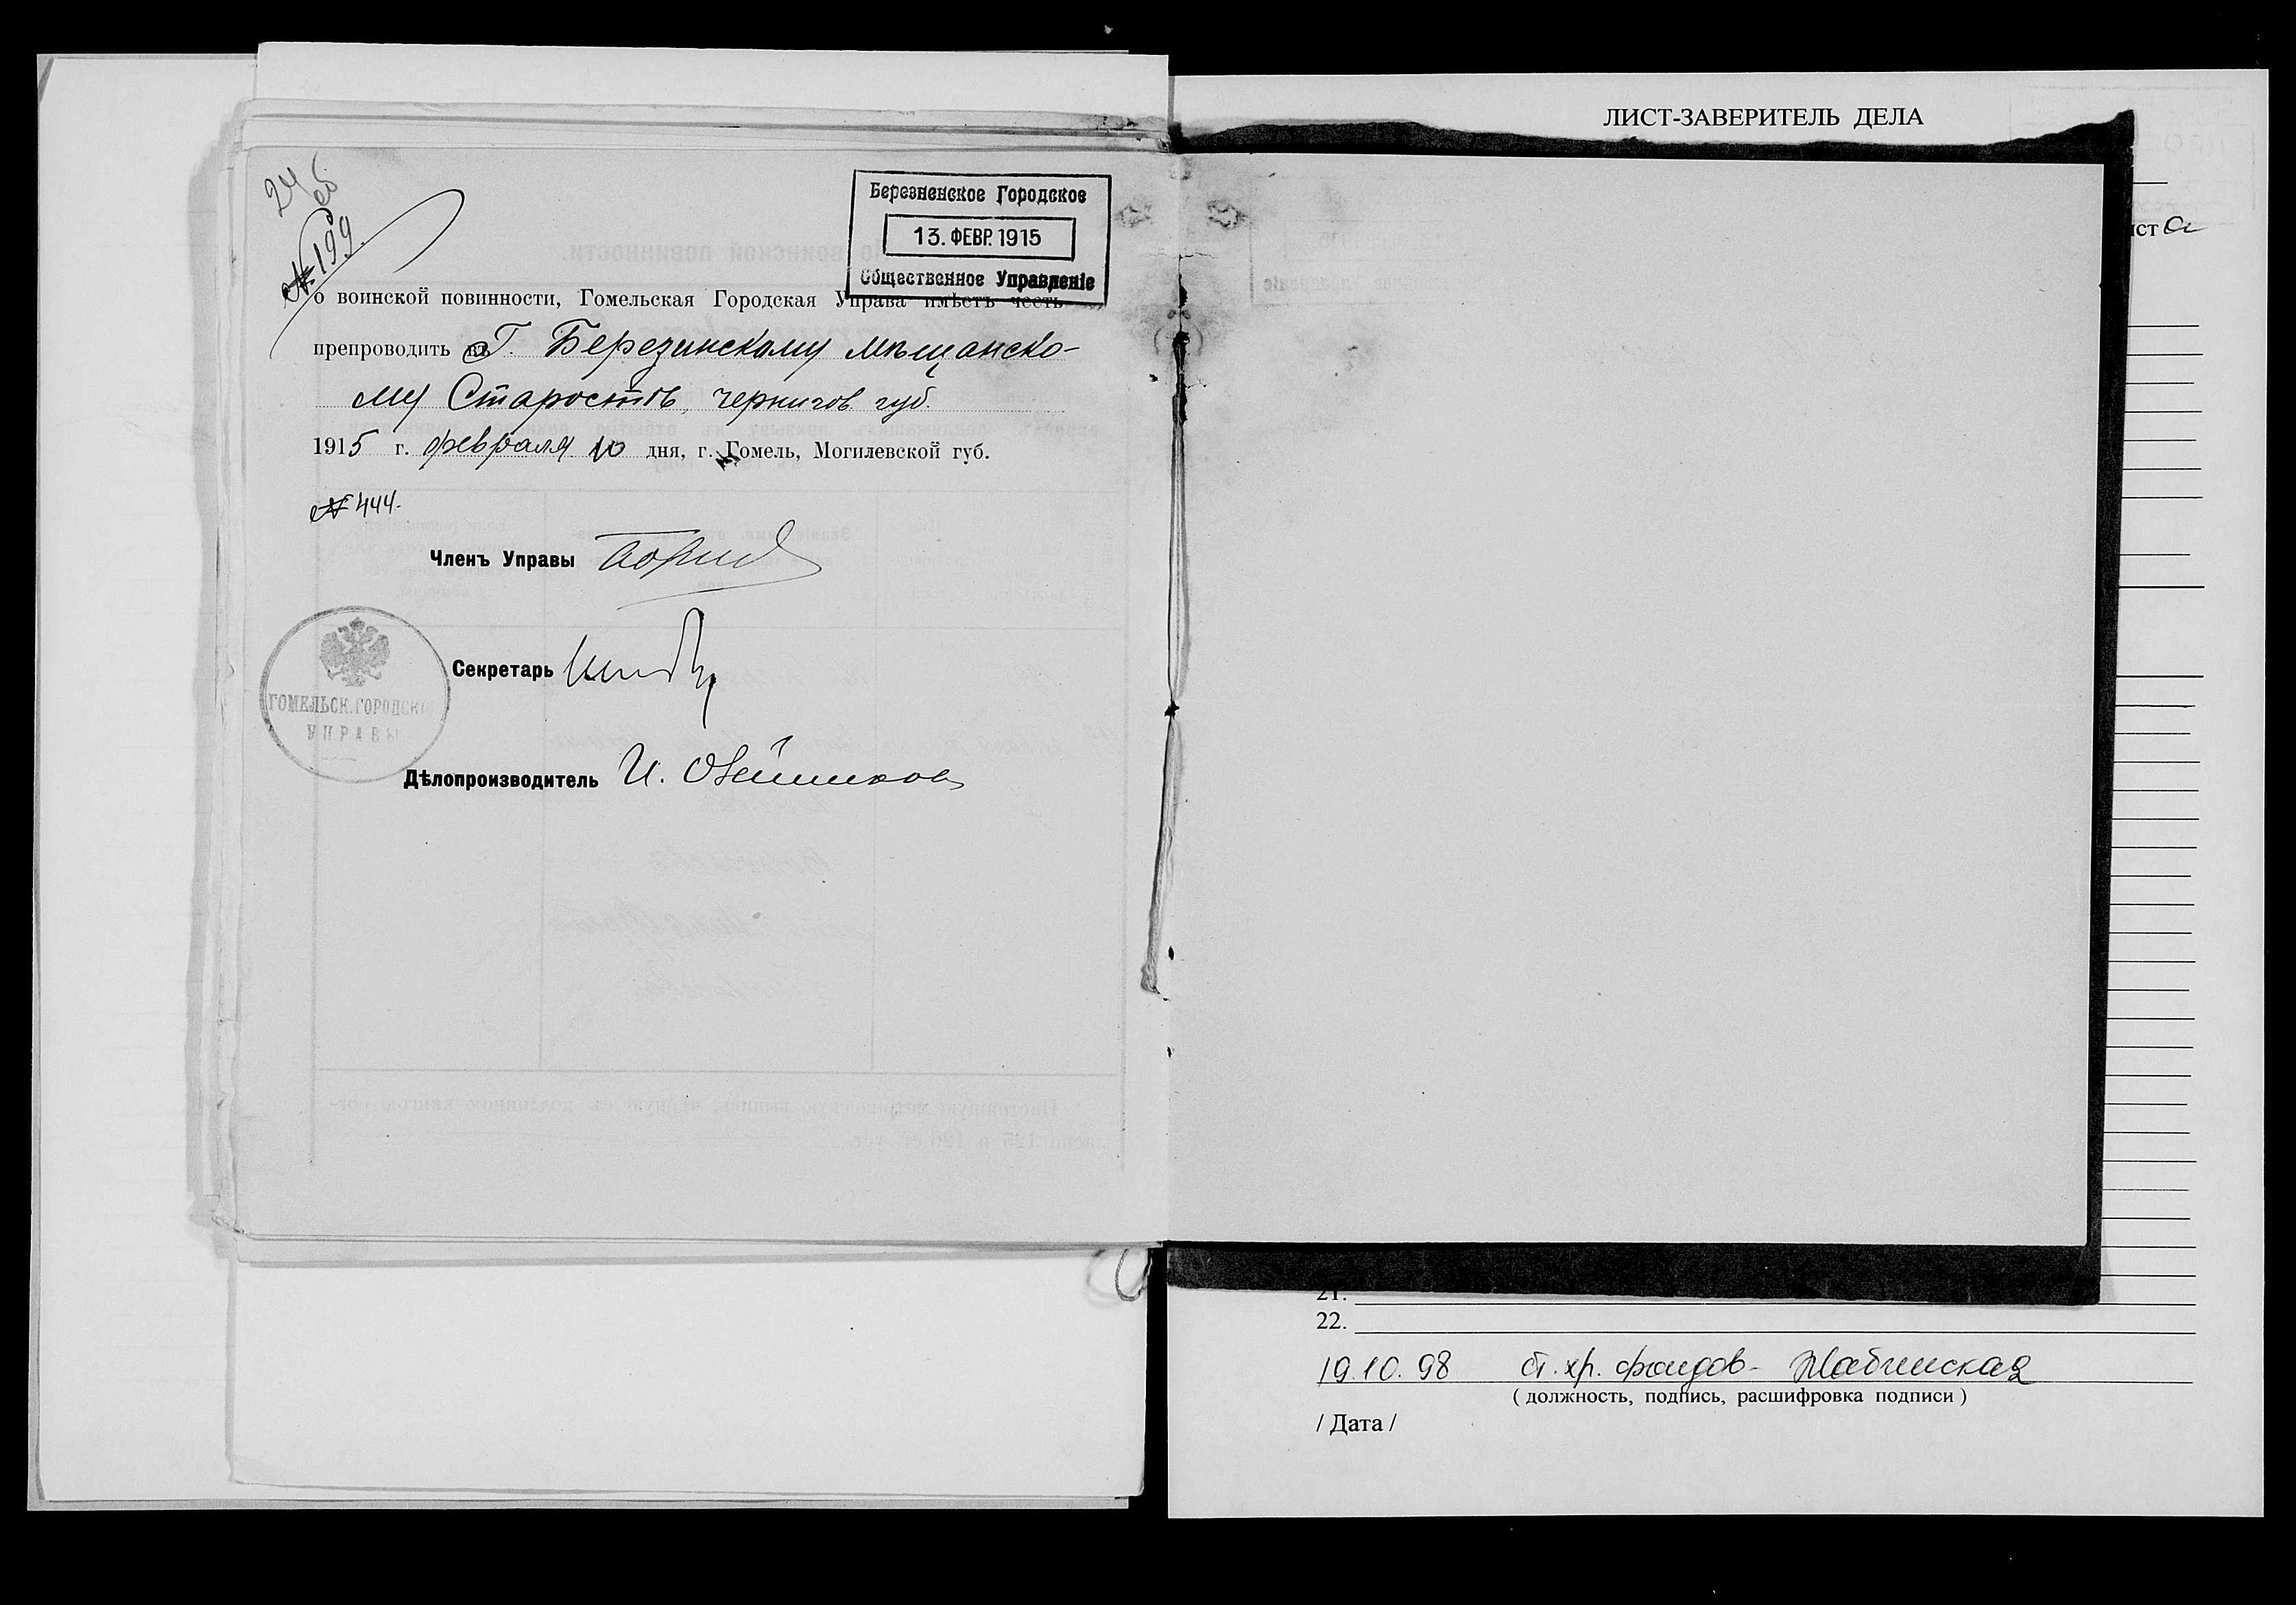 24 об
№ 199
Березненское Городское
13. ФЕВР. 1915
Общественное Управленіе
о воинской повинности, Гомельская Городская Управа имѣетъ честь
препроводить въ Г. Березинскому мѣщанско-
му Старостѣ, чернигов губ.
1915 г. февраля 10 дня, г. Гомель, Могилевской губ.
№ 444.
Членъ Управы
Секретарь
ГОМЕЛЬСК. ГОРОДСК
УПРАВЫ
Дѣлопроизводитель И.
ЛИСТ-ЗАВЕРИТЕЛЬ ДЕЛА
ист а
21.
22.
19.10.98 ст. хр. фондов-
( должность, подпись, расшифровка подписи )
/ Дата /